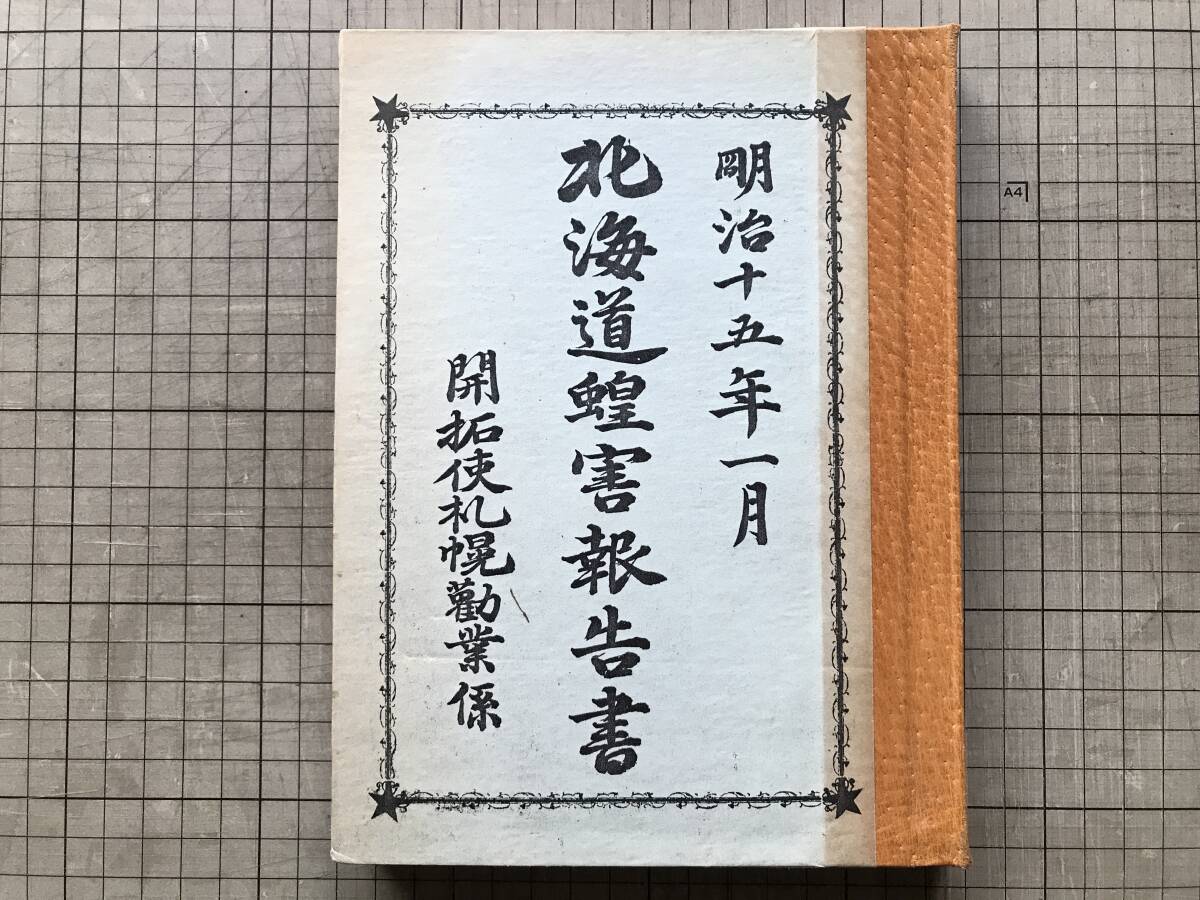 明治十五年一月
北海道蝗害報告書
開拓使札幌勸業係
A4